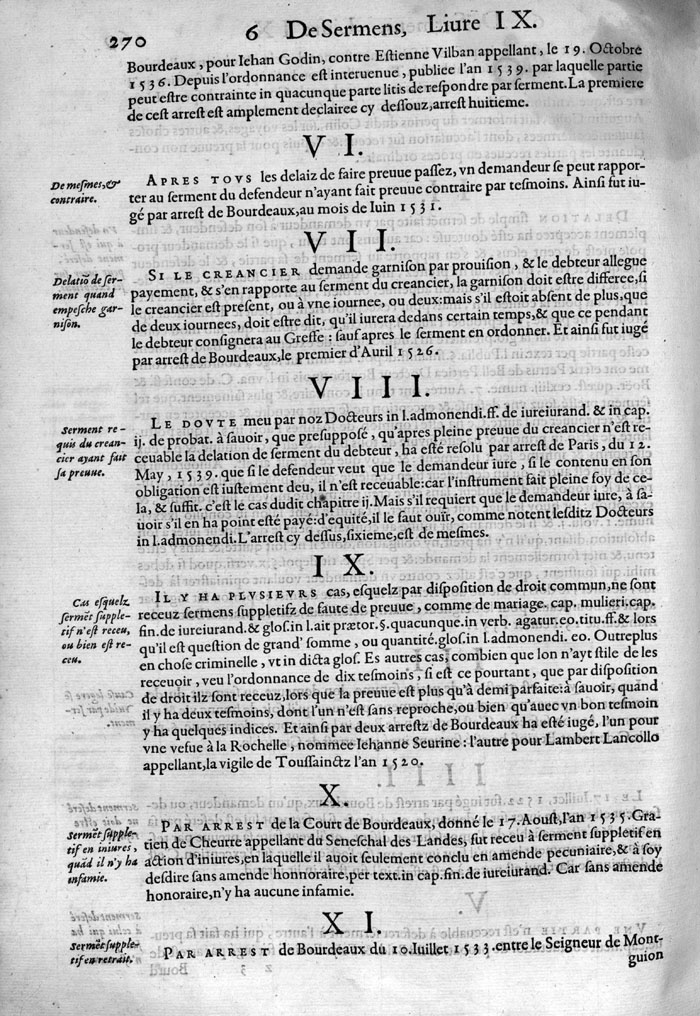 270
6 De Sermens, Liure IX.
Bourdeaux, pour Iehan Godin, contre Estienne Vilban appellant, le 19. Octobre
1536. Depuis l'ordonnance est interuenue, publiee l'an 1539. par laquelle partie
peut estre contrainte in quacunque parte litis de respondre par serment. La premiere
de cest arrest est amplement declairee cy dessouz, arrest huitieme.
VI.
De mesmes, &
contraire.
APRES TOVS les delaiz de faire preuue passez, vn demandeur se peut rappor-
ter au serment du defendeur n'ayant fait preuue contraire par tesmoins. Ainsi fut iu-
gé par arrest de Bourdeaux, au mois de Iuin 1531.
VII.
Delatiõ de ser-
ment quand
empesche gar-
nison.
SI LE CREANCIER demande garnison par prouision, & le debteur allegue
payement, & s'en rapporte au serment du creancier, la garnison doit estre differee, si
le creancier est present, ou à vne iournee, ou deux: mais s'il estoit absent de plus, que
de deux iournees, doit estre dit, qu'il iurera dedans certain temps, & que ce pendant
le debteur consignera au Greffe: sauf apres le serment en ordonner. Et ainsi fut iugé
par arrest de Bourdeaux, le premier d'Auril 1526.
VIII.
Serment re-
quis du crean-
cier ayant fait
sa preuue.
LE DOVTE meu par noz Docteurs in l. admonendi. ff. de iureiurand. & in cap.
ij. de probat. à sauoir, que presupposé, qu'apres pleine preuue du creancier n'est re-
ceuable la delation de serment du debteur, ha esté resolu par arrest de Paris, du 12.
May, 1539. que si le defendeur veut que le demandeur iure, si le contenu en son
obligation est iustement deu, il n'est receuable: car l'instrument fait pleine foy de ce-
la, & suffit. c'est le cas dudit chapitre ij. Mais s'il requiert que le demandeur iure, à sa-
uoir s'il en ha point esté payé: d'equité, il le faut ouïr, comme notent lesditz Docteurs
in l. admonendi. L'arrest cy dessus, sixieme, est de mesmes.
IX.
Cas esquelz
sermẽt supple-
tif n'est receu,
ou bien est re-
ceu.
IL Y HA PLVSIEVRS cas, esquelz par disposition de droit commun, ne sont
receuz sermens suppletifz de faute de preuue, comme de mariage. cap. mulieri. cap.
fin. de iureiurand. & glos. in l. ait prætor. §. quacunque. in verb. agatur. eo. titu. ff. & lors
qu'il est question de grand' somme, ou quantité. glos. in l. admonendi. eo. Outreplus
en chose criminelle, vt in dicta glos. Es autres cas, combien que lon n'ayt stile de les
receuoir, veu l'ordonnance de dix tesmoins, si est ce pourtant, que par disposition
de droit ilz sont receuz, lors que la preuue est plus qu'à demi parfaite: à sauoir, quand
il y ha deux tesmoins, dont l'un n'est sans reproche, ou bien qu'auec vn bon tesmoin
y ha quelques indices. Et ainsi par deux arrestz de Bourdeaux ha esté iugé, l'un pour
vne vefue à la Rochelle, nommee Iehanne Seurine: l'autre pour Lambert Lancollo
appellant, la vigile de Toussainctz l'an 1520.
X.
Sermẽt supple-
tif en iniures,
quãd il n'y ha
infamie.
PAR ARREST de la Court de Bourdeaux, donné le 17. Aoust, l'an 1535. Gra-
tien de Cheurre appellant du Seneschal des Landes, fut receu à serment suppletif en
action d'iniures, en laquelle il auoit seulement conclu en amende pecuniaire, & à soy
desdire sans amende honnoraire, per text. in cap. fin. de iureiurand. Car sans amende
honoraire, n'y ha aucune infamie.
XI.
Sermẽt supple-
tif en retrait.
PAR ARREST de Bourdeaux du 10. Iuillet 1533. entre le Seigneur de Mont-
guion